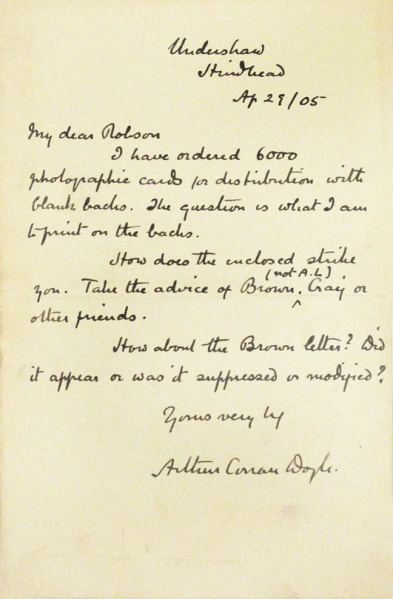 Undershaw
Hindhead
Ap 29/05
My dear Robson
I have ordered 6000
photographic cards for distribution with
blank backs. The question is what I am
to print on the backs.
How does the enclosed strike
(not A.L)
you. Take the advice of Brown, Craig or
other friends.
How about the Brown letter? Did
it appear or was it suppressed or modified?
Yours very
Arthur Conan Doyle.